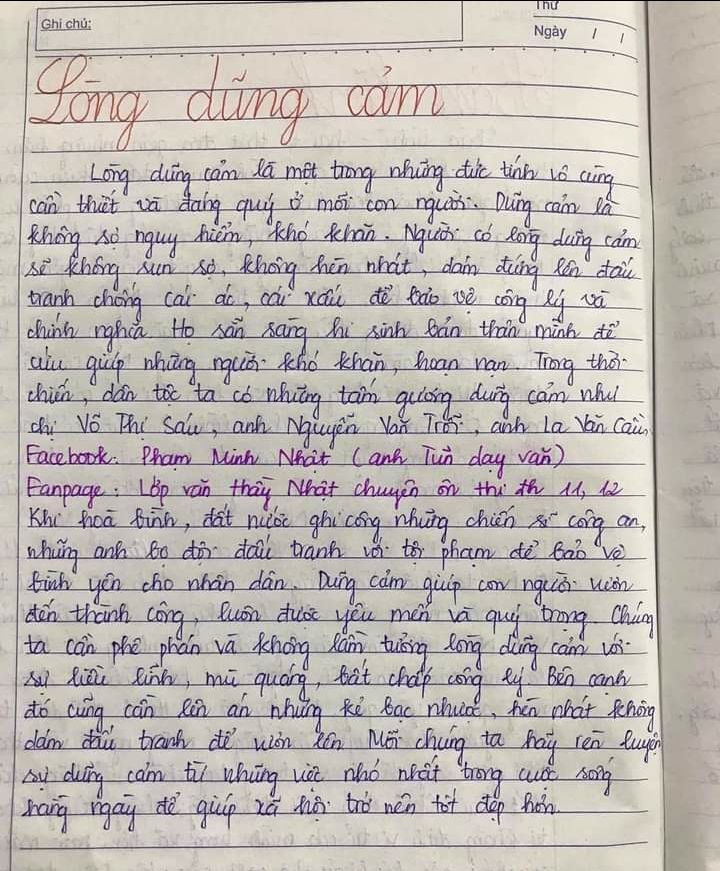 Ghi chú:
Thứ
Ngày / /
Lòng dũng cảm
Lòng dũng cảm là một trong những đức tính vô cùng
cần thiết và đáng quý ở mỗi con người. Dũng cảm là
không sợ nguy hiểm, khó khăn. Người có lòng dũng cảm
sẽ không run sợ, không hèn nhát, dám đứng lên đấu
tranh chống cái ác, cái xấu để bảo vệ công lý và
chính nghĩa. Họ sẵn sàng hi sinh bản thân mình để
cứu giúp những người khó khăn, hoạn nạn. Trong thời
chiến, dân tộc ta có những tấm gương dũng cảm như
chị Võ Thị Sáu, anh Nguyễn Văn Trỗi, anh La Văn Cầu,
Facebook: Phạm Minh Nhật (anh Tũn dạy văn)
Fanpage: Lớp văn thầy Nhật chuyên ôn thi th 11, 12
Khi hoà bình, đất nước ghi công những chiến sĩ công an,
những anh bộ đội đấu tranh với tội phạm để bảo vệ
bình yên cho nhân dân. Dũng cảm giúp con người vươn
đến thành công, luôn được yêu mến và quý trọng. Chúng
ta cần phê phán và không lầm tưởng lòng dũng cảm với
sự liều lĩnh, mù quáng, bất chấp công lý. Bên cạnh
đó cũng cần lên án những kẻ bạc nhược, hèn nhát không
dám đấu tranh để vươn lên. Mỗi chúng ta hãy rèn luyện
sự dũng cảm từ những việc nhỏ nhất trong cuộc sống
hàng ngày để giúp xã hội trở nên tốt đẹp hơn.